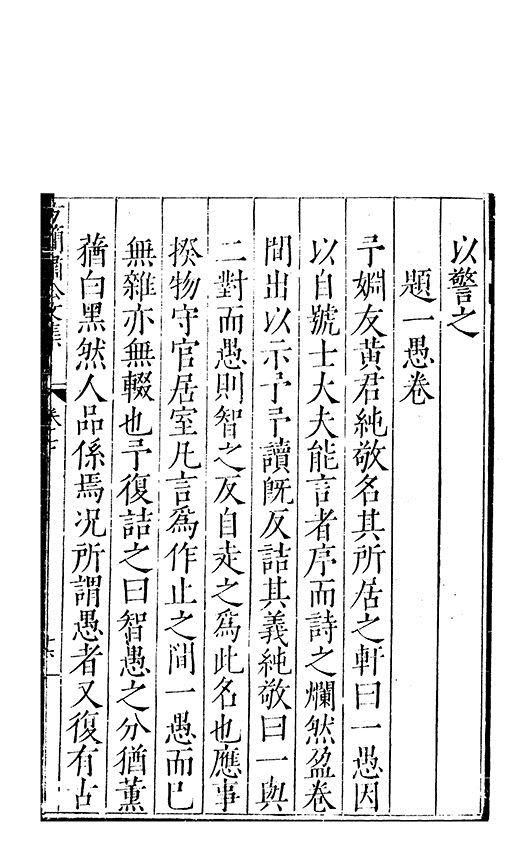 以警之
題一愚卷
予婣友黃君純敬名其所居之軒曰一愚因
以自號士大夫能言者序而詩之爛然盈卷
間出以示予予讀旣反詰其義純敬曰一與
二對而愚則智之反自走之爲此名也應事
揆物守官居室凡言爲作止之間一愚而已
無雜亦無輟也予復詰之曰智愚之分猶薰
蕕白黑然人品係焉况所謂愚者又復有古
簡肅公文集
卷